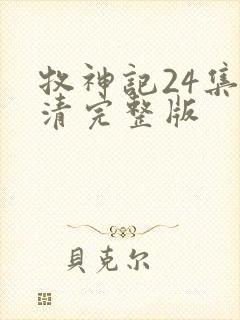 牧神記24集
清完整版
貝克尔